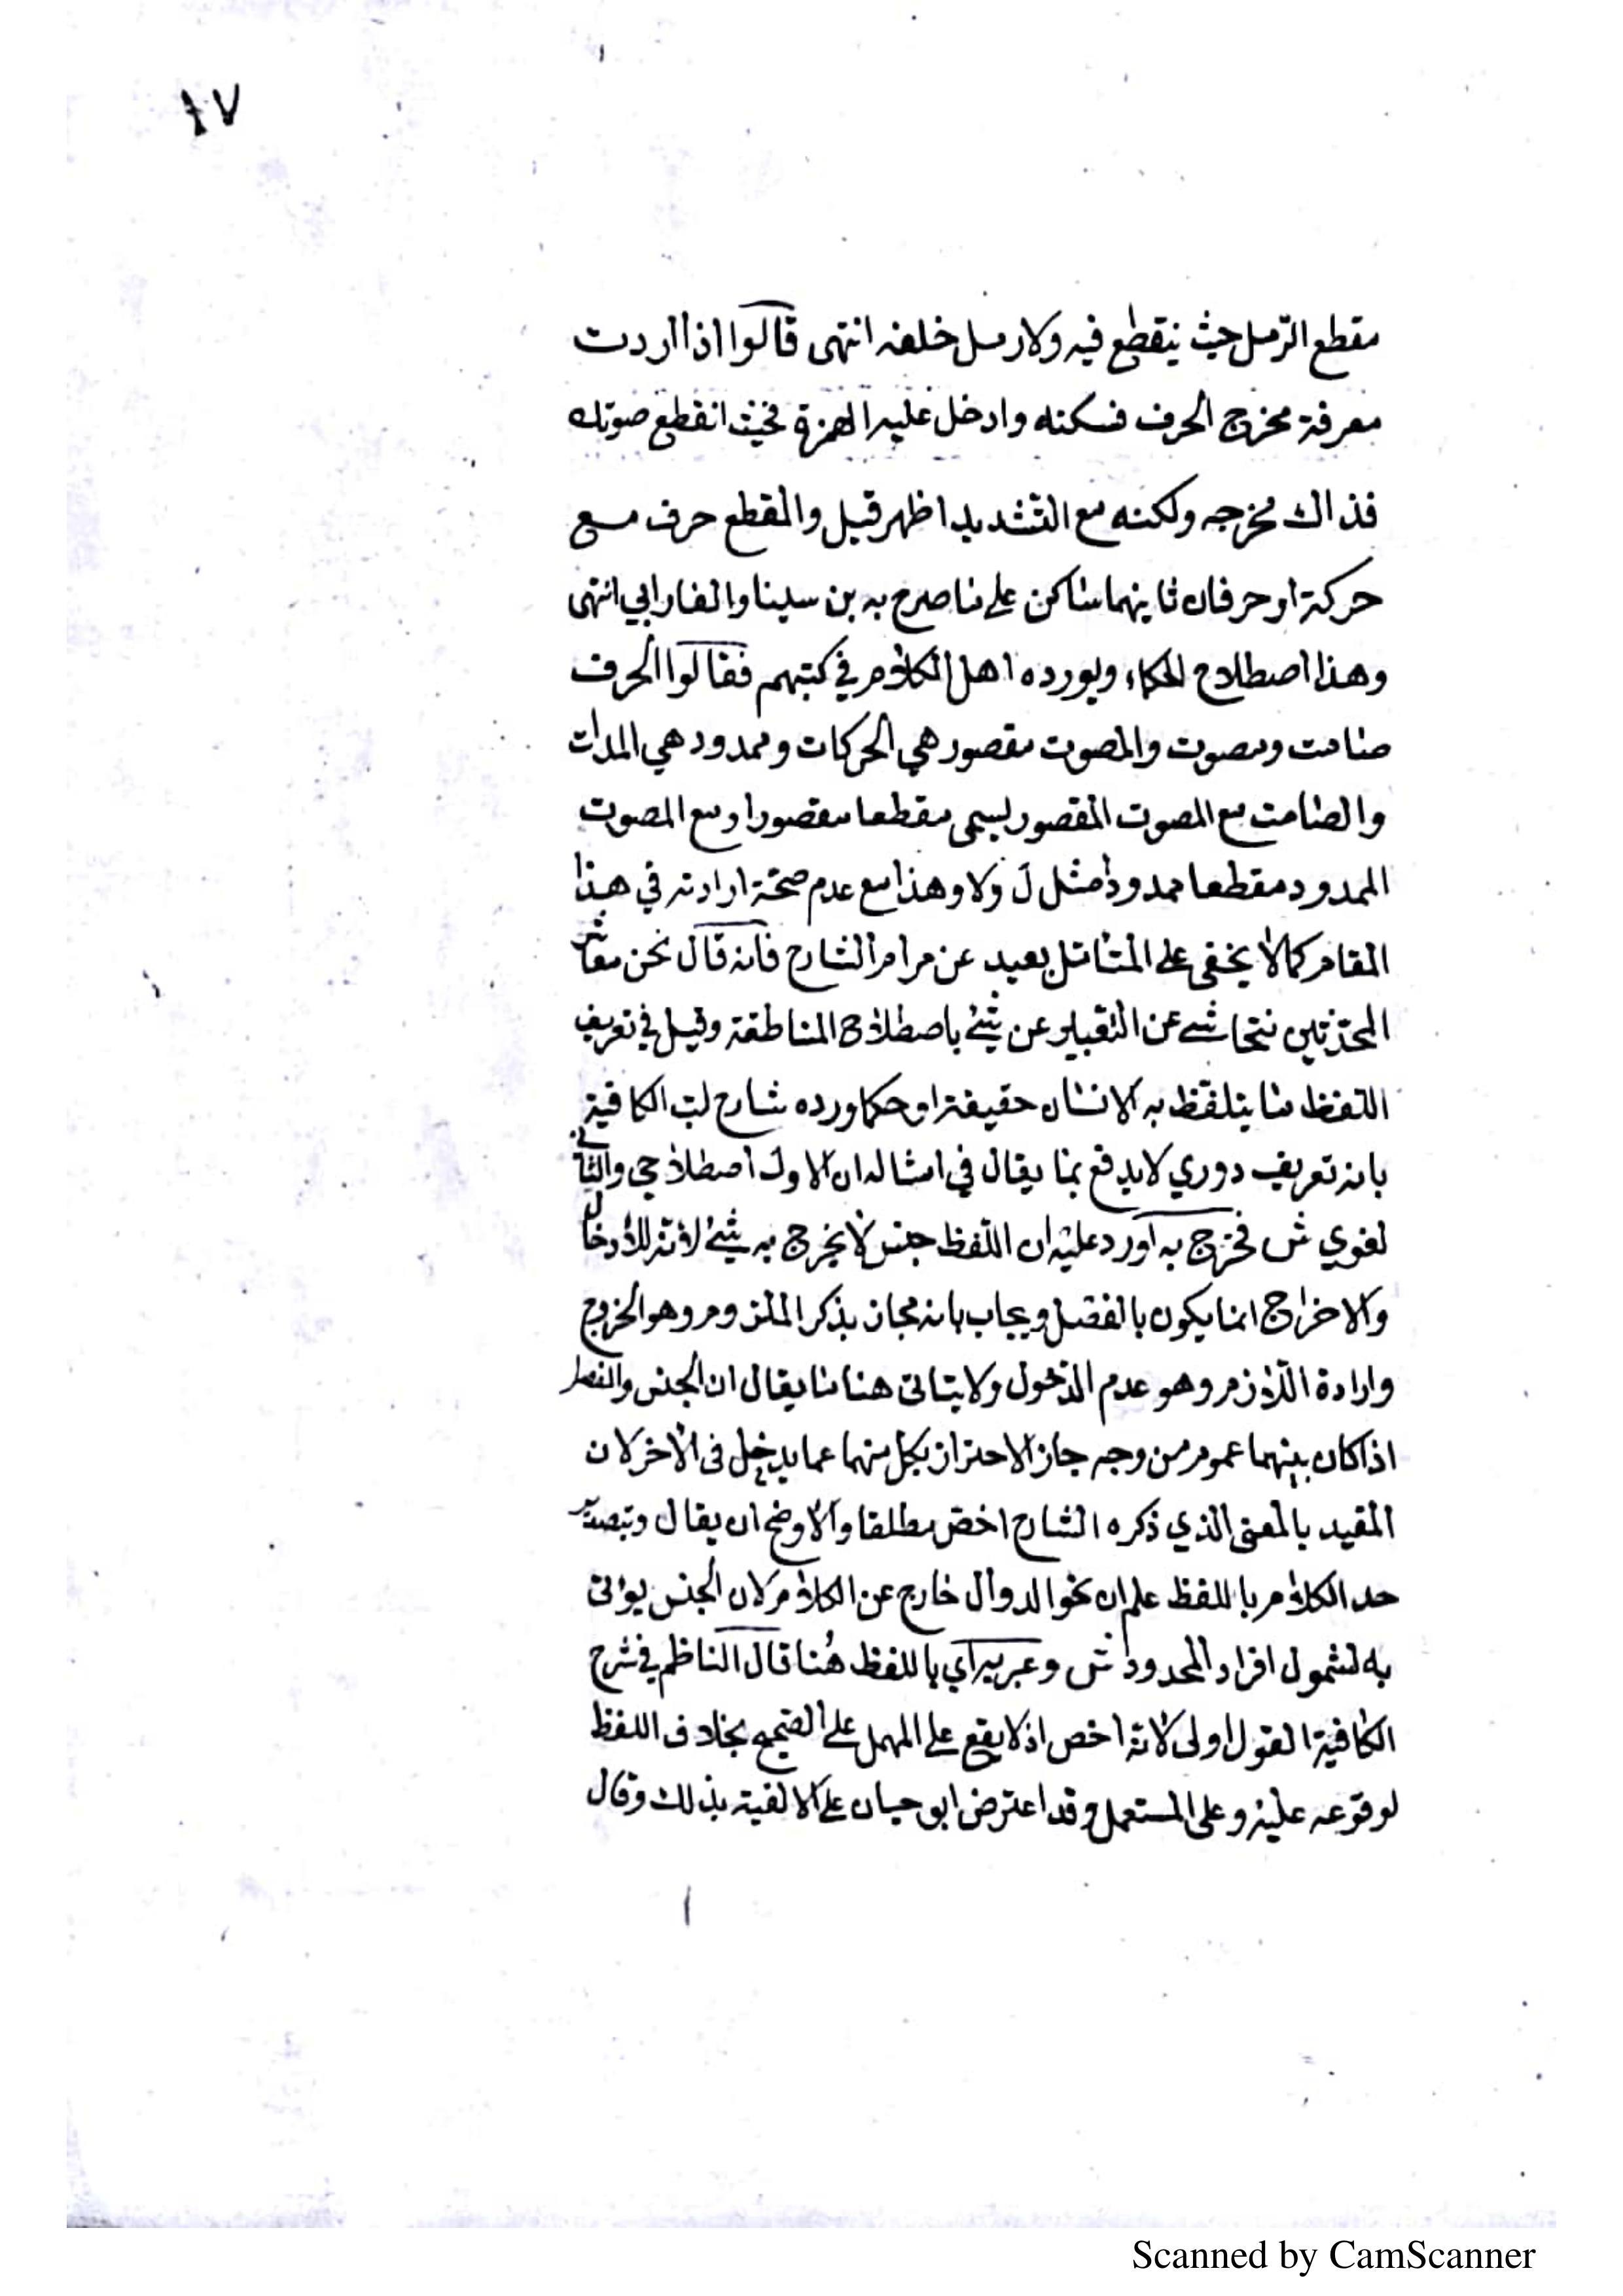 ١٧
مقطع الرّمل حيث ينقطع فيه ولا رمل خلفه انتهى قالوا اذا اردت
معرفة مخرج الحرف فسكنه وادخل عليه الهمزة فحيث انقطع صوتك
فذاك مخرجه ولكنه مع التشديد اظهر قيل والمقطع حرف مع
حركة او حرفان ثانيهما ساكن على ما صرح به بن سينا والفارابي انتهى
وهذا اصطلاح الحكماء ويورده اهل الكلام في كتبهم فقالوا الحرف
صامت ومصوت والمصوت مقصور هي الحركات وممدود هي المدات
والصامت مع المصوت المقصور يسمى مقطعا مقصورا ومع المصوت
الممدود مقطعا ممدودا مثل لَ ولا وهذا مع عدم صحّة ارادته في هذا
المقام كما لا يخفى على المتأمل بعيد عن مرام الشارح فانه قال نحن معاشر
المحدّثين نتحاشى عن التعبير عن شئ باصطلاح المناطقة وقيل في تعريف
اللفظ ما يتلفظ به الانسان حقيقة او حكما ورده شارح لب الكافية
بانه تعريف دوري لا يدفع بما يقال في امثاله ان الاول اصطلاحي والثاني
لغوي ش فخرج به اورد عليه ان اللفظ جنس لا يخرج به شئ لانه للادخال
والاخراج انما يكون بالفصل ويجاب بانه مجاز بذكر الملزوم وهو الخروج
وارادة اللازم وهو عدم الدخول ولا يتاتى هنا ما يقال ان الجنس والفصل
اذا كان بينهما عموم من وجه جاز الاحتراز بكل منهما عما يدخل فى الاخر لان
المقيد بالمعنى الذي ذكره الشارح اخص مطلقا والاوضح ان يقال وبتصدير
حد الكلام باللفظ علم ان نحو الدوال خارج عن الكلام لان الجنس يؤتى
به لشمول افراد المحدود ش وعبر به اي باللفظ هُنا قال الناظم في شرح
الكافية القول اولى لانه اخص اذ لا يقع على المهمل على الصحيح بخلاف اللفظ
لوقوعه عليه وعلى المستعمل وقد اعترض ابو حيان على الالفية بذلك وقال
Scanned by CamScanner